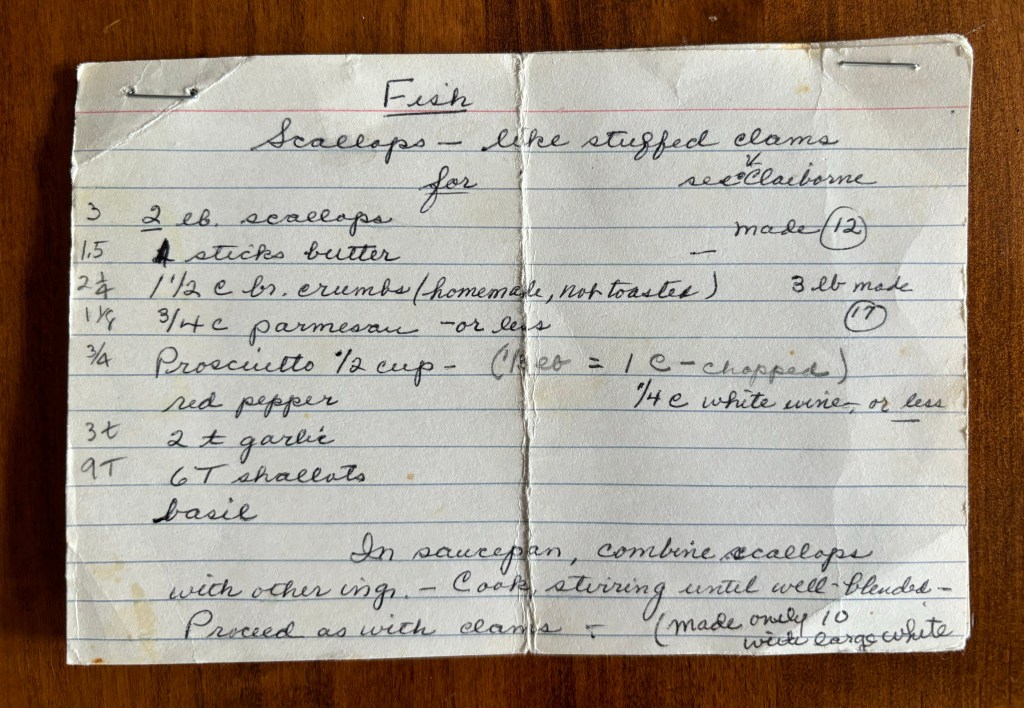 Fish
Scallops - like stuffed clams
for see Claiborne
3 2 lb. scallops
made 12
1.5 1 sticks butter -
2 1/4 1 1/2 c br. crumbs (homemade, not toasted) 3 lb made
3/4 c parmesan - or less 17
3/4 Prosciutto 1/2 cup - (1/3 lb = 1 C - chopped)
red pepper 1/4 c white wine, or less
3t 2 t garlic
9T 6T shallots
basil
In saucepan, combine scallops
with other ings. - Cook, stirring until well-blended -
Proceed as with clams - (made only 10
with large white